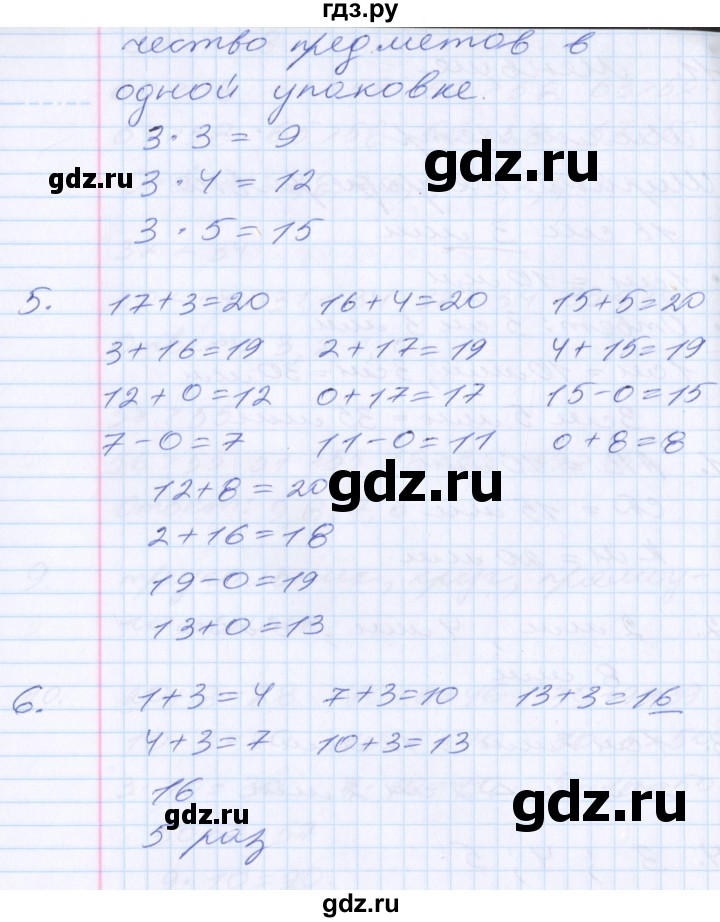 гдз.ру
чество предметов в
одной упаковке.
3 · 3 = 9
gdz.ru
3 · 4 = 12
gdz.ru
3 · 5 = 15
5. 17+3=20 16+4=20 15+5=20
3+16=19 2+17=19 4+15=19
12+0=12 0+17=17 15-0=15
7-0=7 11-0=11 0+8=8
12+8=20
gdz.ru
2+16=18
19-0=19
13+0=13
6. 1+3=4 7+3=10 13+3=16
4+3=7 10+3=13
16
gdz.ru
gdz.ru
5 раз
gdz.ru